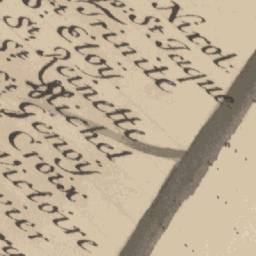 Nicol.
St. Jaque
Trinite
St. Eloy.
St. Reinette
St. Michel
Genoij
Croix
Victoire